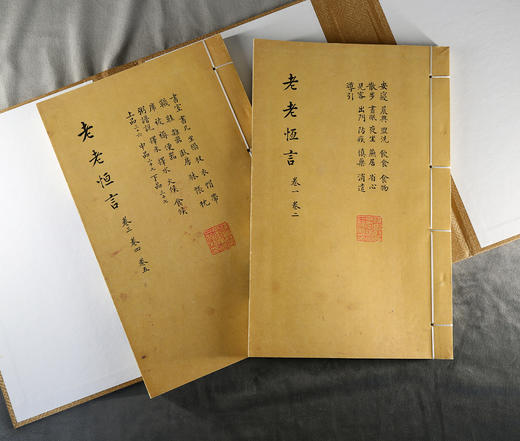 安寢 晨興 盥洗 飲食 食物
散步 晝臥 夜坐 燕居 省心
見客 出門 防疾 慎藥 消遣
導引
老老恆言 卷一 卷二
書室 書几 坐榻 杖 衣 帽 帶
襪 鞋 雜器 臥房 牀 帳 枕
席 被 褥 便器
粥譜說 擇米 擇水 火候 食候
上品三十六 中品二十七 下品三十七
老老恆言 卷三 卷四 卷五